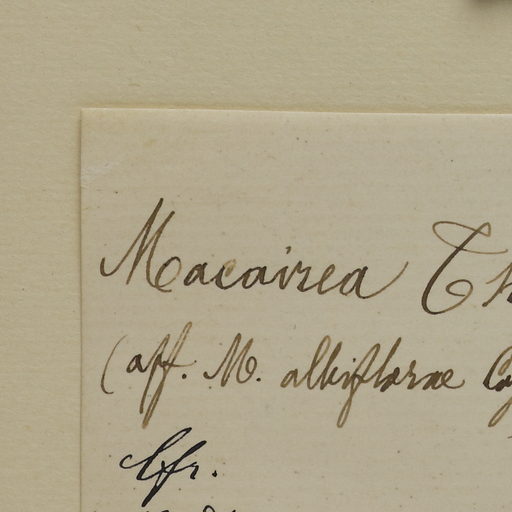 Macairea
(aff. M. albiflorae
Cfr.